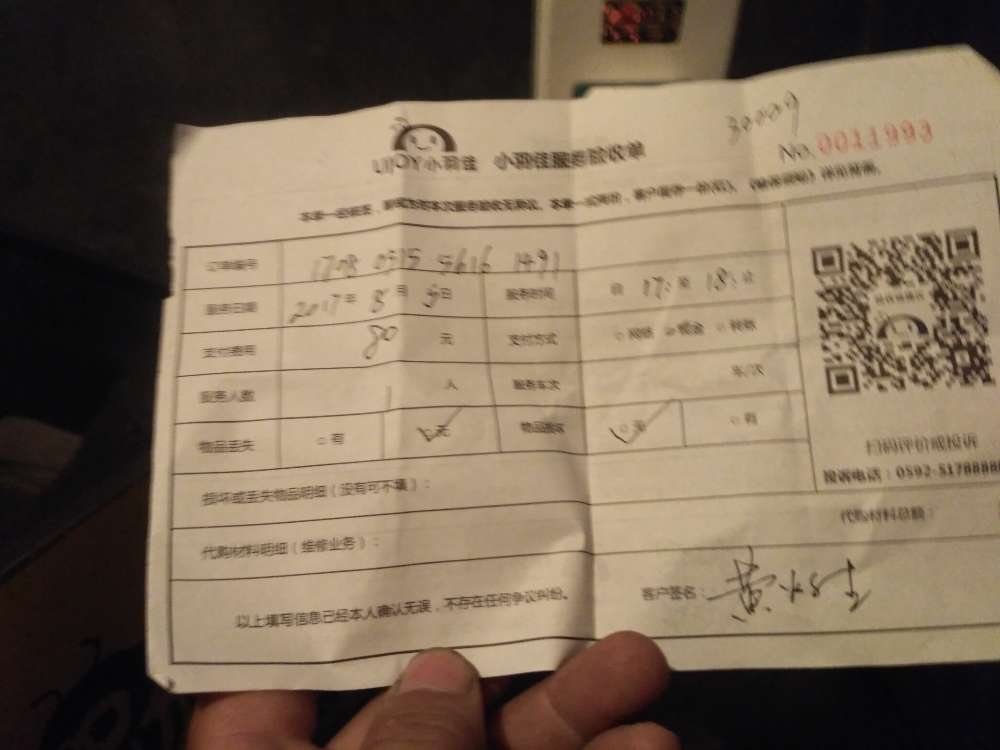 30009
LIJOY小羽佳 小羽佳服务验收单 No.0011993
订单编号 1708 0515 5616 1491
服务日期 2017年8月5日 服务时间 自 17: 至 18: 止
支付费用 80 元 支付方式 现金 转账
服务人数 1 人 服务车次 车/次
物品丢失 有 无 物品损坏 无 有
扫码评价或投诉
投诉电话：0592-5178888
损坏或丢失物品明细（没有可不填）：
代购材料明细（维修业务）： 代购材料总额：
以上填写信息已经本人确认无误，不存在任何争议纠纷。 客户签名：